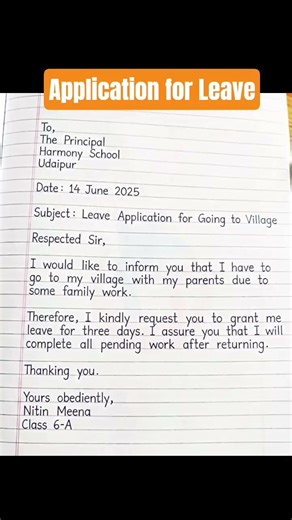 Application for Leave
To,
The Principal
Harmony School
Udaipur
Date: 14 June 2025
Subject: Leave Application for Going to Village
Respected Sir,
I would like to inform you that I have to
go to my village with my parents due to
some family work.
Therefore, I kindly request you to grant me
leave for three days. I assure you that I will
complete all pending work after returning.
Thanking you.
Yours obediently,
Nitin Meena
Class 6-A